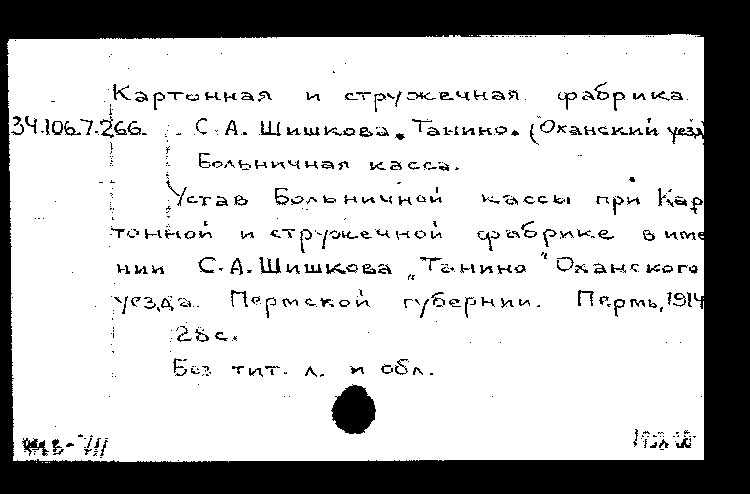 Картонная и стружечная фабрика
34.106.7.266. С. А. Шишкова. Танино. (Оханский уезд
Больничная касса.
Устав Больничной кассы при Кар
тонной и стружечной фабрике в име
нии С. А. Шишкова „Танино" Оханского
уезда Пермской губернии. Пермь, 1914
28 с.
Без тит. л. и обл.